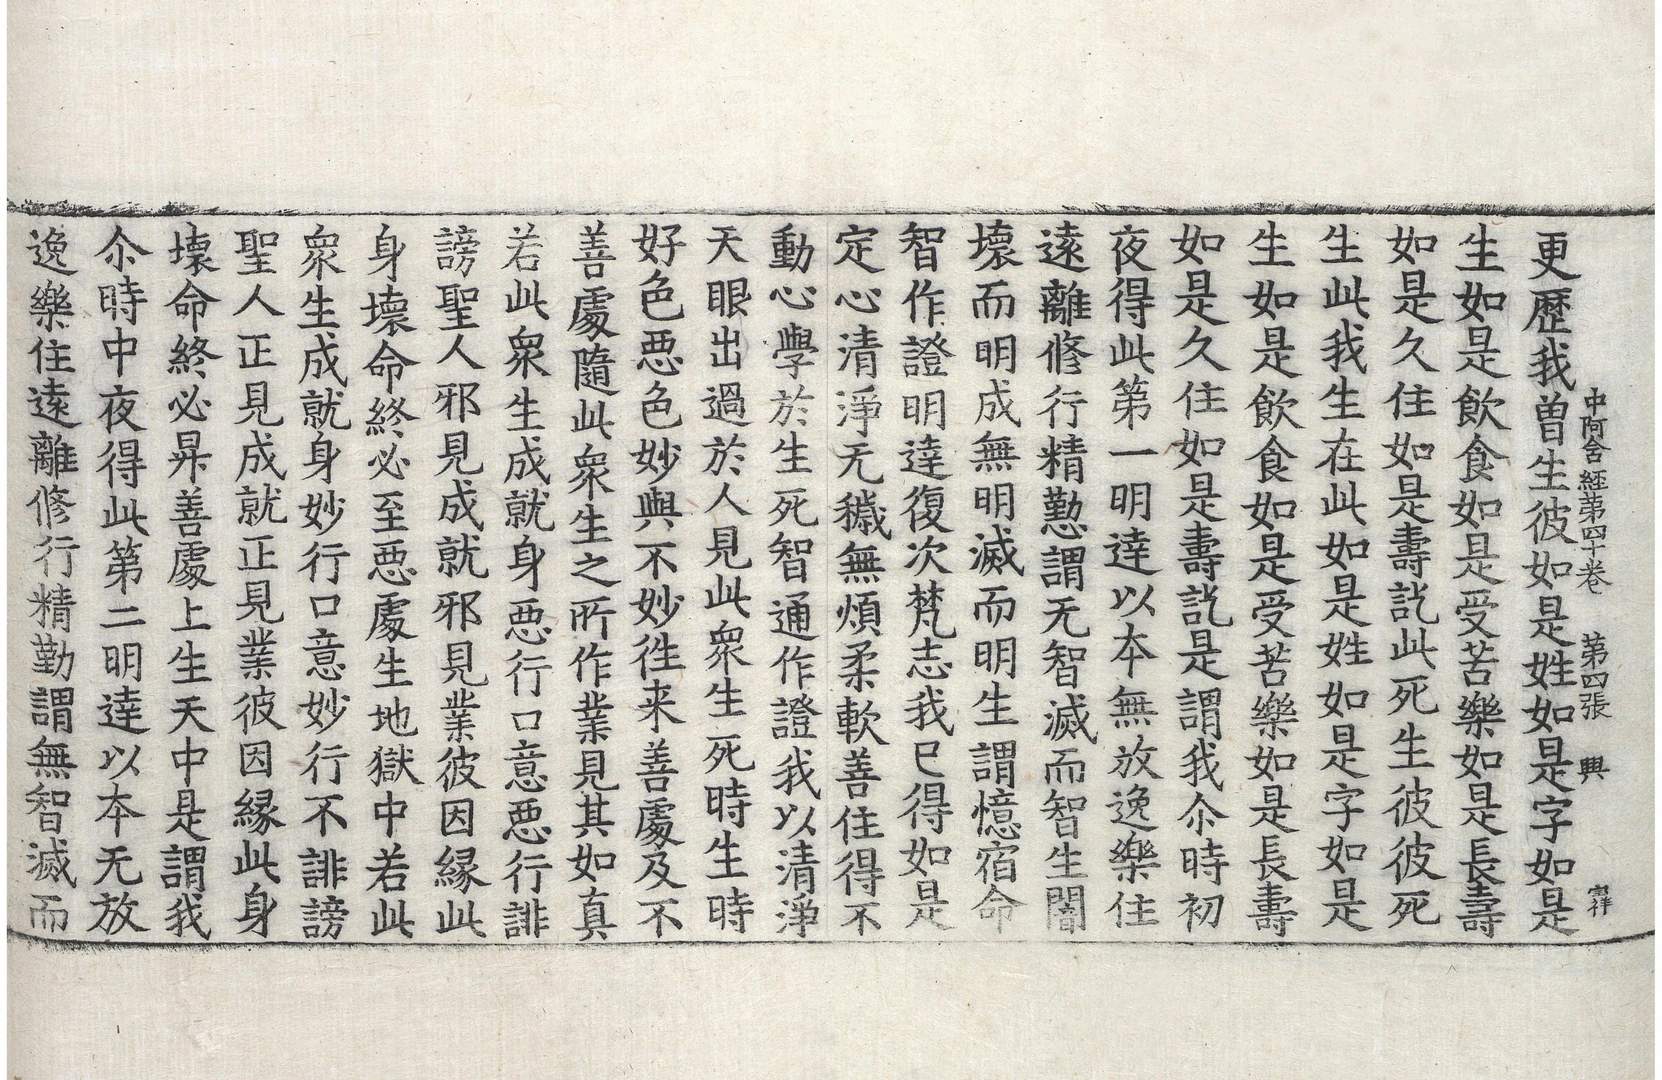 中阿含經第四十卷 第四張 興
更歷我曾生彼如是姓如是字如是
生如是飲食如是受苦樂如是長壽
如是久住如是壽訖此死生彼彼死
生此我生在此如是姓如是字如是
生如是飲食如是受苦樂如是長壽
如是久住如是壽訖是謂我尒時初
夜得此第一明達以本無放逸樂住
遠離修行精懃謂无智滅而智生闇
壞而明成無明滅而明生謂憶宿命
智作證明達復次梵志我已得如是
定心清淨无穢無煩柔軟善住得不
動心學於生死智通作證我以清淨
天眼出過於人見此衆生死時生時
好色惡色妙與不妙徃来善處及不
善處隨此衆生之所作業見其如真
若此衆生成就身惡行口意惡行誹
謗聖人邪見成就邪見業彼因緣此
身壞命終必至惡處生地獄中若此
衆生成就身妙行口意妙行不誹謗
聖人正見成就正見業彼因緣此身
壞命終必昇善處上生天中是謂我
尒時中夜得此第二明達以本无放
逸樂住遠離修行精勤謂無智滅而